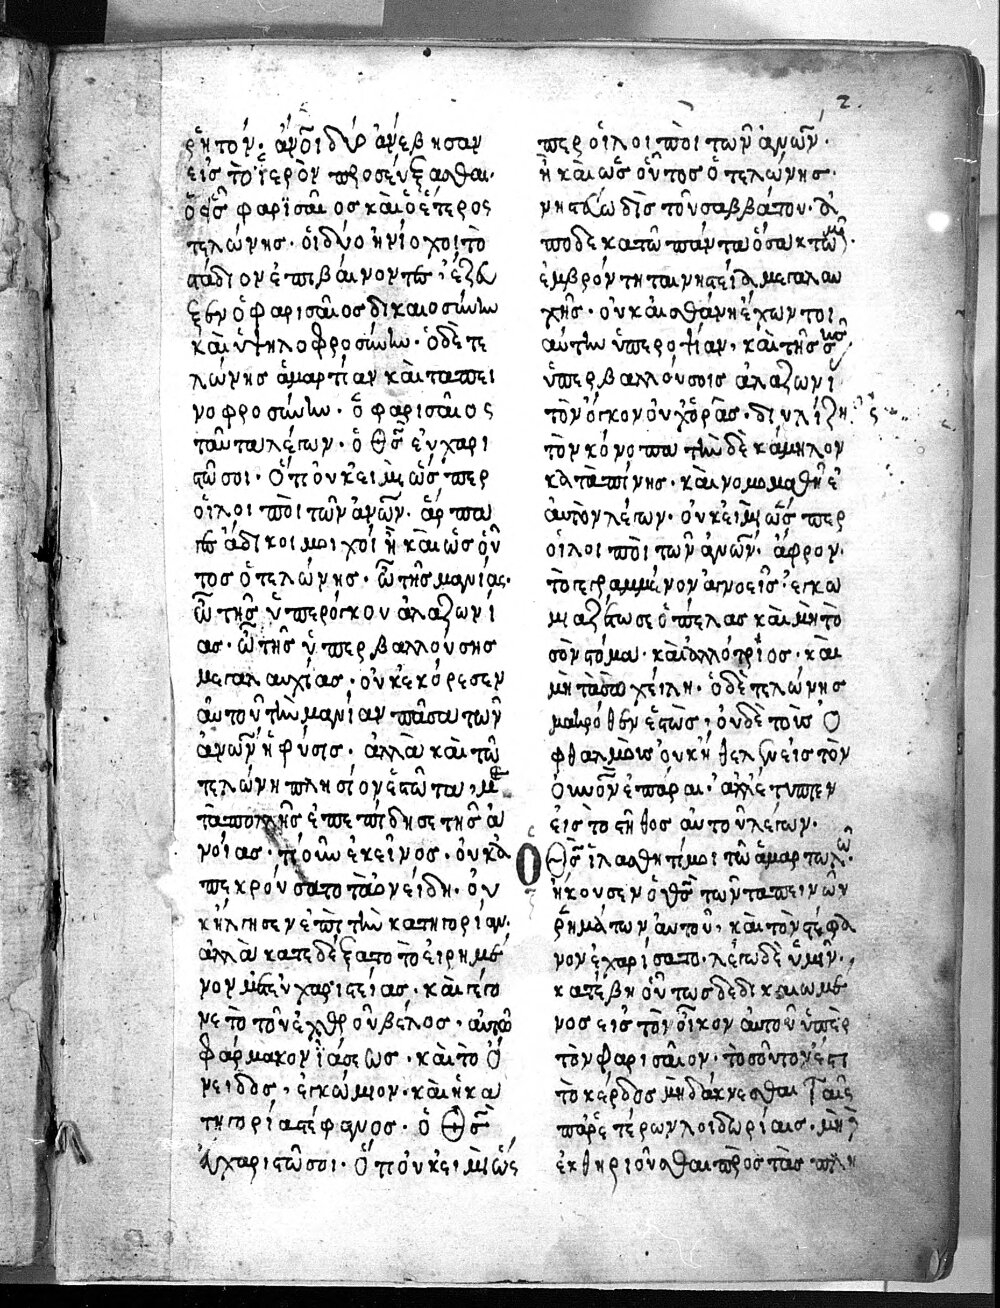 2.
ρητόν. ἄνοι δύο ἀνέβησαν
εἰς τὸ ἱερὸν προσεύξασθαι.
ὁ εἷς φαρισαῖος καὶ ὁ ἕτερος
τελώνης. οἱ δύο ἡνίοχοι τὸ
στάδιον ἐπιβαίνοντες. ἔζευ
ξεν ὁ φαρισαῖος δικαιοσύνην
καὶ ὑψηλοφροσύνην. ὁ δὲ τε
λώνης ἁμαρτίαν καὶ ταπει
νοφροσύνην. ὁ φαρισαῖος
ταῦτα λέγων. ὁ θς εὐχαρι
στῶ σοι. ὅτι οὐκ εἰμὶ ὥσπερ
οἱ λοιποὶ τῶν ἀνων. ἅρπα
γες ἄδικοι μοιχοὶ ἢ καὶ ὡς οὗ
τος ὁ τελώνης. ὢ τῆς μανίας.
ὢ τῆς ὑπερόγκου ἀλαζονί
ας. ὢ τῆς ὑπερβαλλούσης
μεγαλαυχίας. οὐκ ἐκόρεσεν
αὐτοῦ τὴν μανίαν πᾶσα τῶν
ἀνων ἡ φύσις. ἀλλὰ καὶ τῶ
τελώνη πλησίον ἑστῶτα, με
τὰ πολλῆς ἐπεπήδησε τῆς ἀ
νοίας. τί οὖν ἐκεῖνος. οὐκ ἀ
πεκρούσατο τὰ ὀνείδη. οὐ
κ ἤλγησεν ἐπὶ τὴν κατηγορίαν.
ἀλλὰ κατεδέξατο τὸ εἰρημέ
νον μετ εὐχαριστείας. καὶ γέγο
νε τὸ τοῦ ἐχθροῦ βέλος, αὐτῶ
φάρμακον ἰάσεως. καὶ τὸ ὄ
νειδος, ἐγκώμιον. καὶ ἡ κα
τηγορία στέφανος. ὁ θς
εὐχαριστῶ σοι. ὅτι οὐκ εἰμὶ ὡς
περ οἱ λοιποὶ τῶν ἀνων.
ἢ καὶ ὡς οὗτος ὁ τελώνης.
νηστεύω δὶς τοῦ σαββάτου. ἀ
ποδεκατῶ πάντα ὅσα κτῶμαι.
ἐμβρόντητα νηστεία μεγαλαυ
χῆς. οὐκ αἰσθάνη ἔχων τοι
αύτην ὑπεροψίαν. καὶ τῆς σῆς
ὑπερβαλλούσοις ἀλαζονί
τὸν ὄγκον οὐχ ὁρᾶς. διυλίζης
τὸν κόνοπα τὴν δὲ κάμηλον
καταπίνης. καὶ νομομαθῆ ἑ
αὐτὸν λέγων. οὐκ εἰμὶ ὥσπερ
οἱ λοιποὶ τῶν ἀνων. ἄφρον.
τὸ γεγραμμένον ἀγνοεῖς. ἐγκω
μιαζέτω σε ὁ πέλας καὶ μὴ τὸ
σὸν στόμα. καὶ ἀλλότριος. καὶ
μὴ τὰ σὰ χείλη. ὁ δὲ τελώνης
μακρόθεν ἑστὼς. οὐδὲ τοὺς ὀ
φθαλμοὺς οὐκ ἤθελεν εἰς τὸν
οὐνον ἐπάραι. ἀλλ ἔτυπτεν
εἰς τὸ στῆθος αὐτοῦ λέγων.
Ὁ θς ἱλάσθητί μοι τῶ ἁμαρτωλῶ.
ἤκουσεν ὁ θς τῶν ταπεινῶν
ῥημάτων αὐτοῦ, καὶ τὸν στέφα
νον ἐχαρίσατο. λέγω δὲ ὑμῖν.
κατέβη οὗτος δεδικαιωμέ
νος εἰς τὸν οἶκον αὐτοῦ ὑπὲρ
τὸν φαρισαῖον. τοσοῦτον ἐστὶ
τὸ κέρδος μὴ δάκνεσθαι ταῖς
παρ ἑτέρων λοιδωρίαις. μὴ δὲ
ἐκθηριοῦσθαι πρὸς τὰς πλη